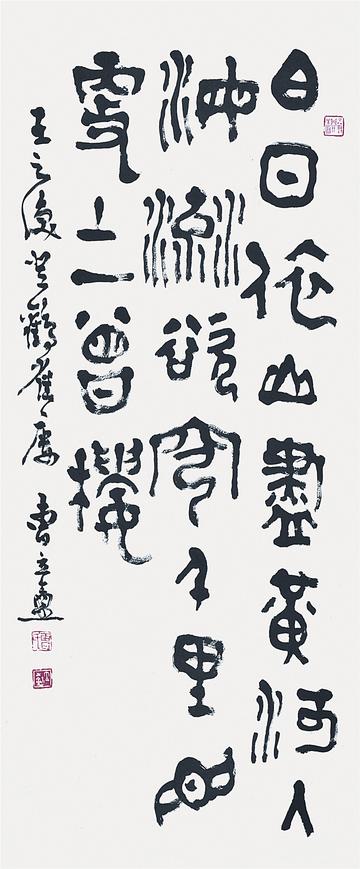 白日依山盡黃河入
海流欲窮千里目
更上一曾樓
王之渙登鸛雀樓 曹立庵